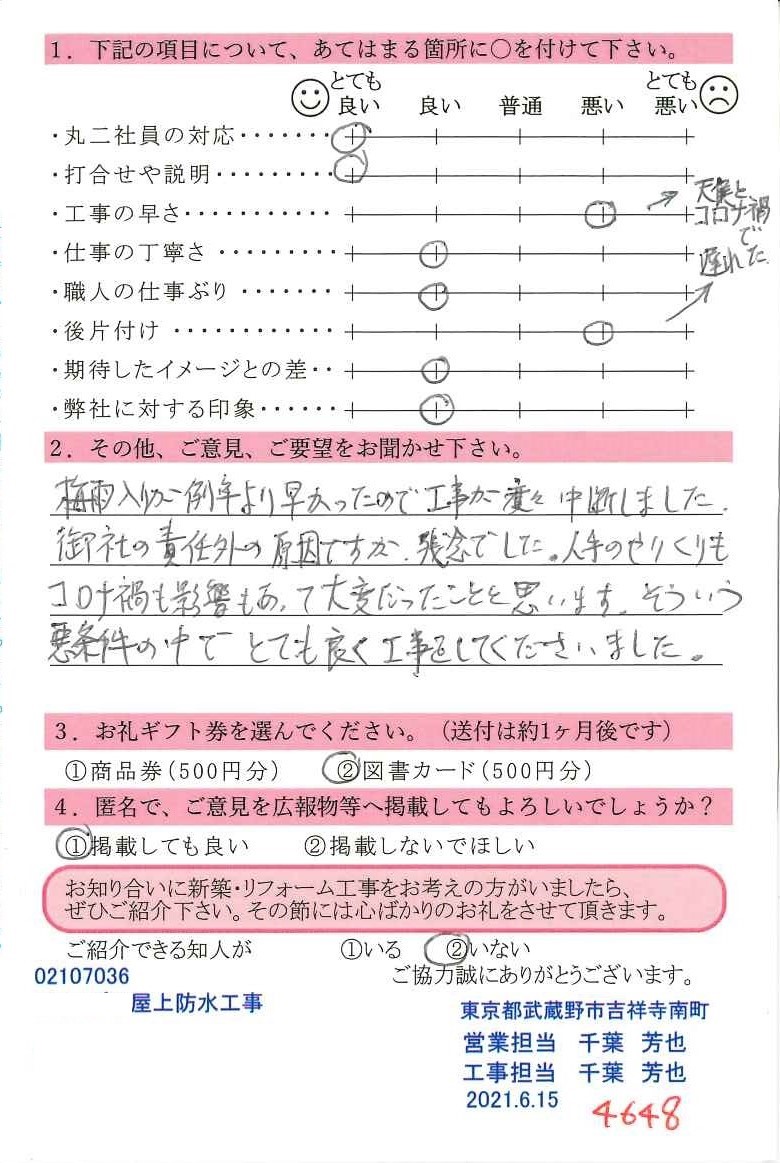 1．下記の項目について、あてはまる箇所に○を付けて下さい。
とても良い 良い 普通 悪い とても悪い
・丸二社員の対応・・・・・・・
・打合せや説明・・・・・・・・・
・工事の早さ・・・・・・・・・・・
天候と
コロナ禍
で
遅れた
・仕事の丁寧さ・・・・・・・・・
・職人の仕事ぶり・・・・・・・
・後片付け・・・・・・・・・・・・
・期待したイメージとの差・・
・弊社に対する印象・・・・・・
2．その他、ご意見、ご要望をお聞かせ下さい。
梅雨入りが例年より早かったので工事が度々中断しました。
御社の責任外の原因ですが、残念でした。人手のやりくりも
コロナ禍も影響もあって大変だったことと思います。そういう
悪条件の中でとても良く工事をしてくださいました。
3．お礼ギフト券を選んでください。（送付は約1ヶ月後です）
①商品券（500円分） ②図書カード（500円分）
4．匿名で、ご意見を広報物等へ掲載してもよろしいでしょうか？
①掲載しても良い ②掲載しないでほしい
お知り合いに新築・リフォーム工事をお考えの方がいましたら、
ぜひご紹介下さい。その節には心ばかりのお礼をさせて頂きます。
ご紹介できる知人が ①いる ②いない
02107036 ご協力誠にありがとうございます。
屋上防水工事 東京都武蔵野市吉祥寺南町
営業担当 千葉 芳也
工事担当 千葉 芳也
2021.6.15
4648